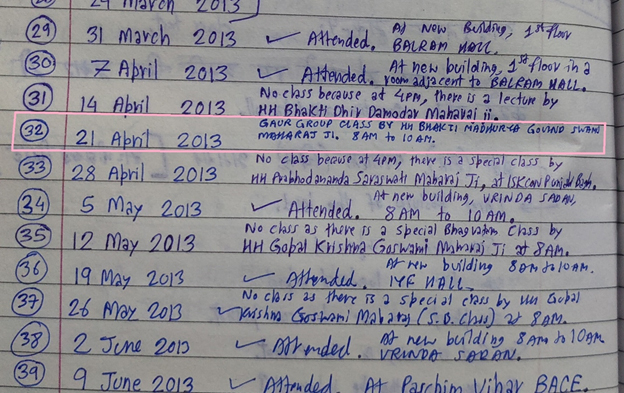 28 24 March 2013
29 31 March 2013 ✓ Attended. At New Building, 1st floor
BALRAM HALL.
30 7 April 2013 ✓ Attended. At new building, 1st floor in a
room adjacent to BALRAM HALL.
31 14 April 2013 No class because at 4pm, there is a lecture by
HH Bhakti Dhir Damodar Maharaj ji.
32 21 April 2013 GAUR GROUP CLASS BY HH BHAKTI MADHURYA GOVIND SWAMI
MAHARAJ JI. 8AM to 10AM.
33 28 April 2013 No class becaue at 4pm, there is a special class by
HH Prabhodananda Saraswati Maharaj Ji, at ISKCON Punjabi Bagh.
34 5 May 2013 ✓ Attended. At new building, VRINDA SADAN,
8AM to 10AM.
35 12 May 2013 No class as there is a special Bhagvatam Class by
HH Gopal Krishna Goswami Maharaj Ji at 8AM.
36 19 May 2013 ✓ Attended. At new building 8am to 10am.
IYF HALL.
37 26 May 2013 No class as there is a special class by HH Gopal
✓ Krishna Goswami Maharaj (S.B. Class) at 8AM.
38 2 June 2013 ✓ Attended. At new building 8am to 10am
VRINDA SADAN.
39 9 June 2013 ✓ Attended. At Paschim Vihar BACE.